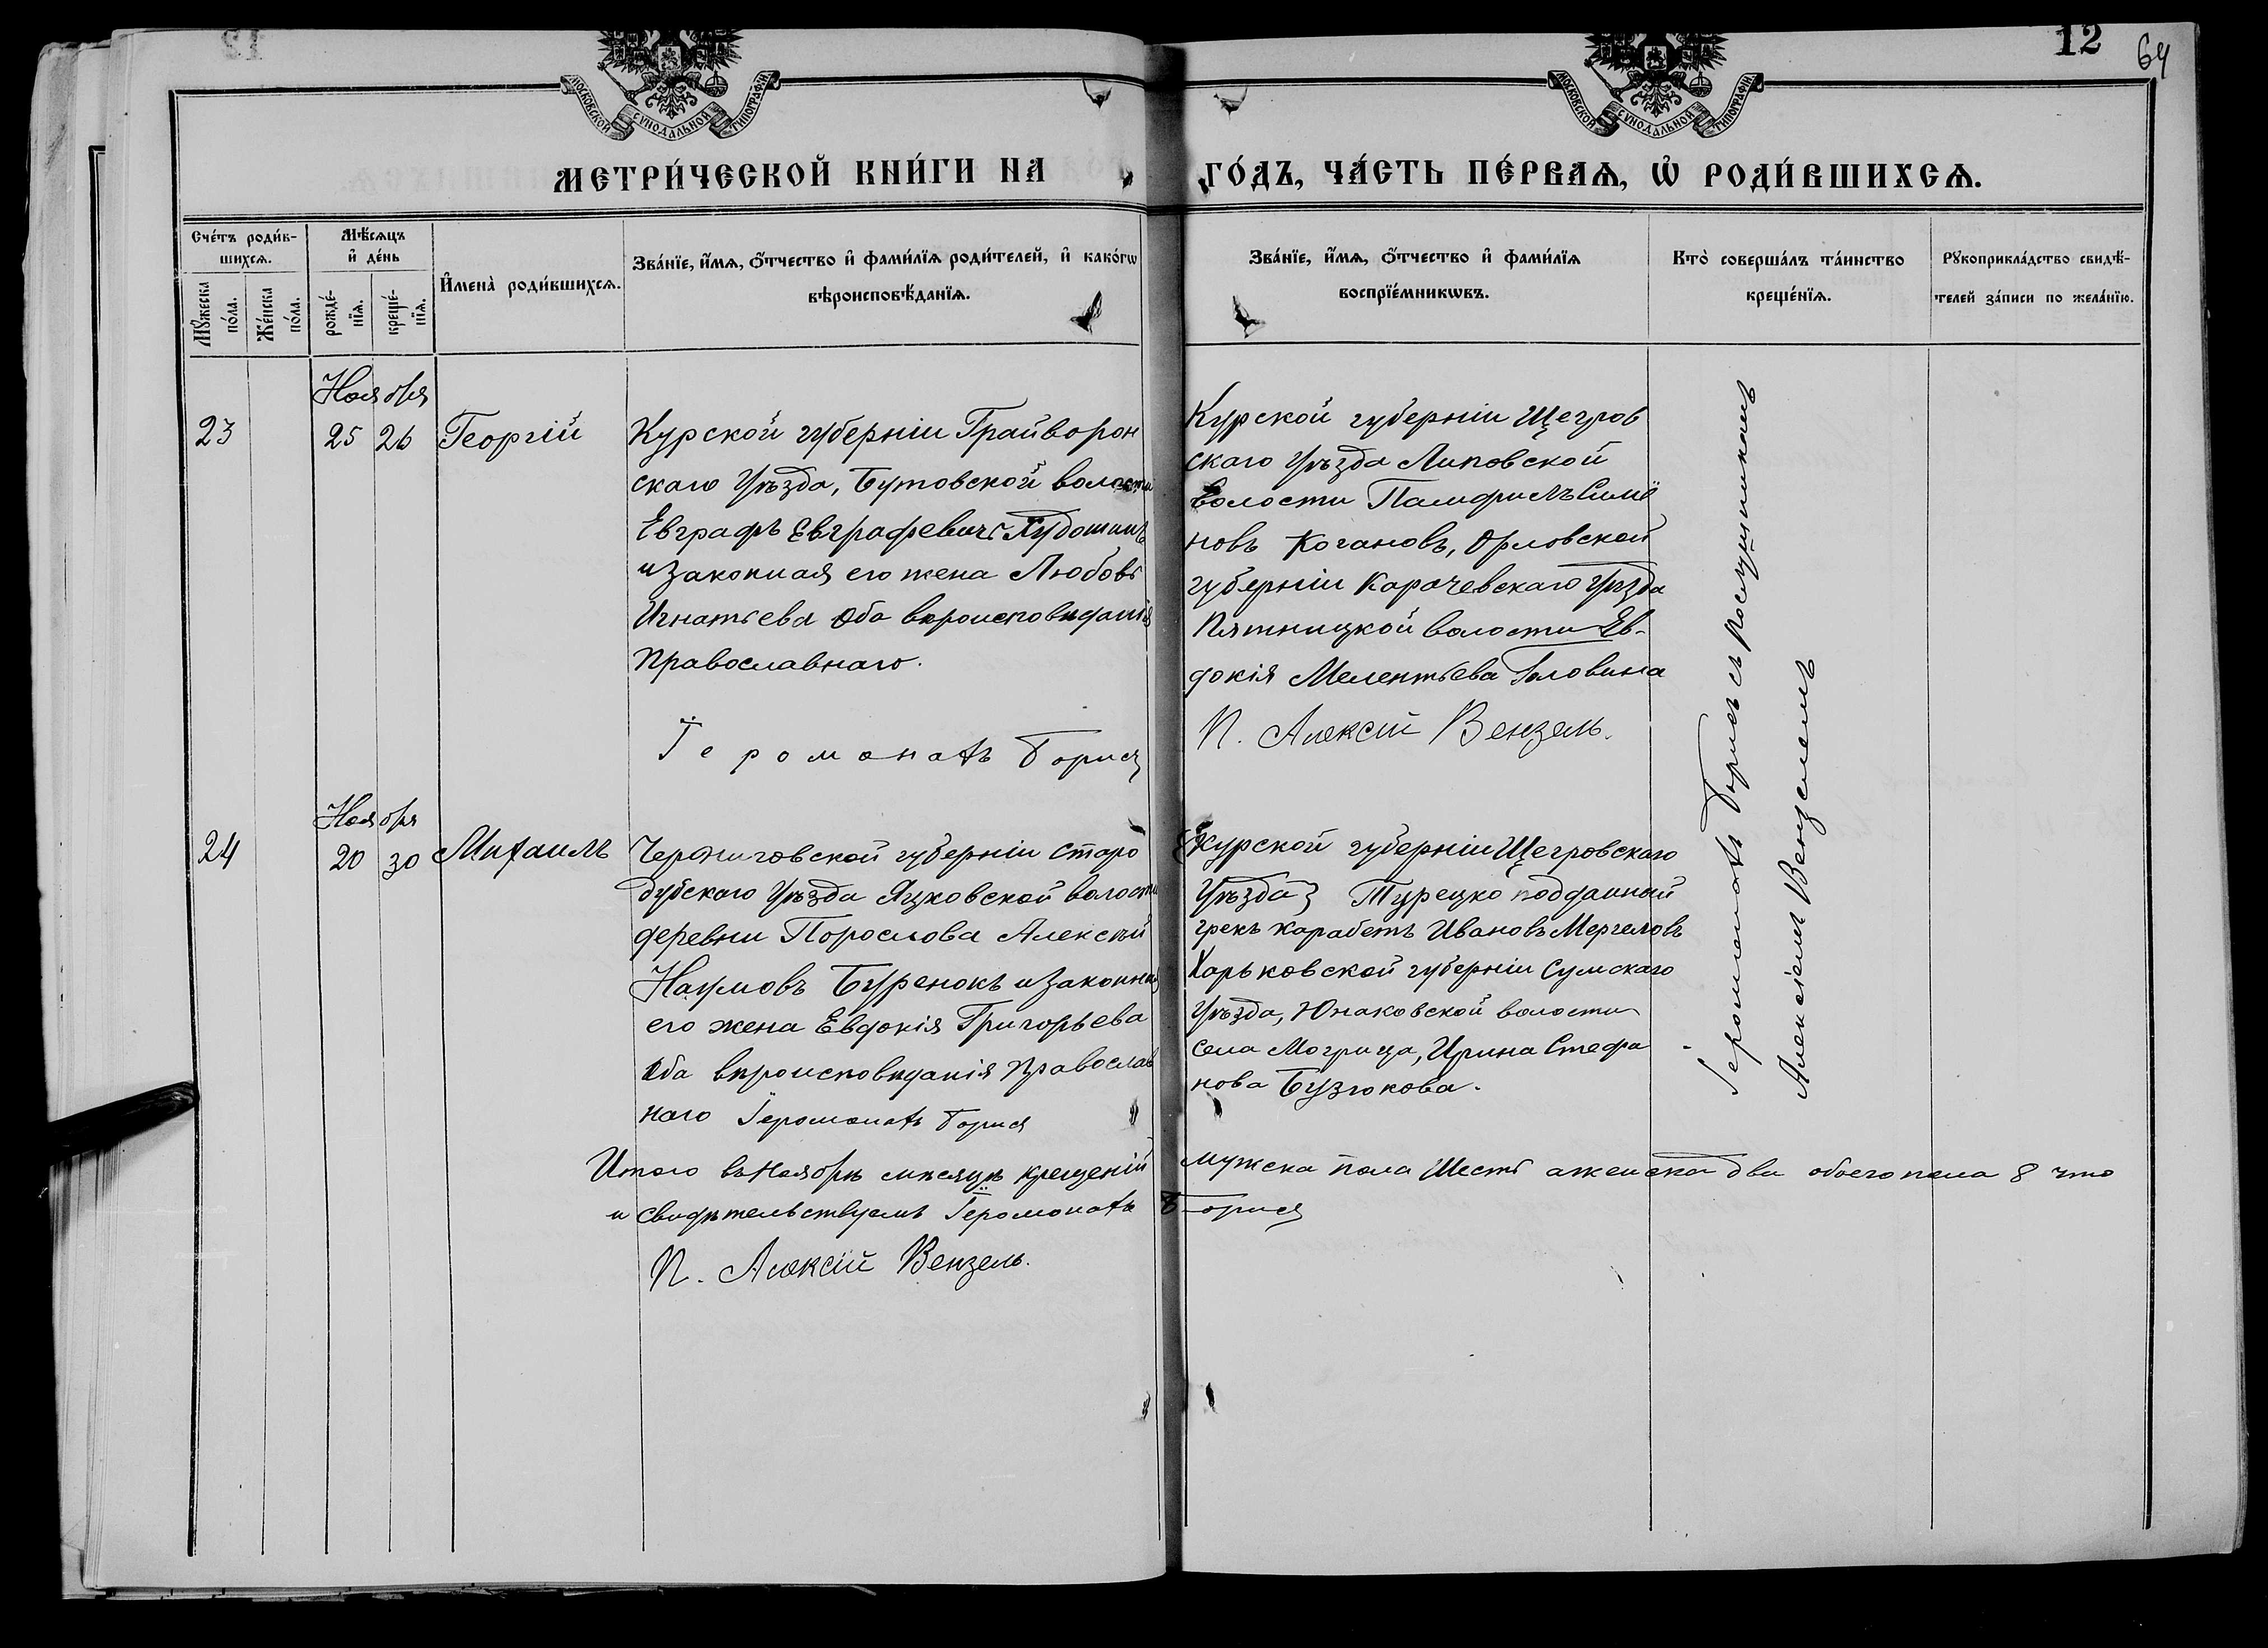 12
64
МОСКОВСКОЙ СѴНОДАЛЬНОЙ ТИПОГРАФІИ
МОСКОВСКОЙ СѴНОДАЛЬНОЙ ТИПОГРАФІИ
МЕТРИ́ЧЕСКОЙ КНИ́ГИ НА
ГО́ДЪ, ЧА́СТЬ ПЕ́РВАѦ, Ѡ҆ РОДИ́ВШИХСѦ.
Сче́тъ роди́в-
шихсѧ.
Мꙋ́жеска по́ла.
Же́нска по́ла.
Мѣ́сѧцъ
и҆ де́нь
рожде́-
нїѧ.
креще́-
нїѧ.
И҆мена̀ роди́вшихсѧ.
Зва́нїе, и҆́мѧ, ѻ҆́тчество и҆ фами́лїѧ роди́телей, и҆ како́гѡ
вѣроисповѣ́данїѧ.
Зва́нїе, и҆́мѧ, ѻ҆́тчество и҆ фами́лїѧ
воспрїе́мникѡвъ.
Кто̀ соверша́лъ та́инство
креще́нїѧ.
Рꙋкоприкла́дство свидѣ́-
телей за́писи по жела́нїю.
Ноября
23 25 26 Георгій
Курской губерніи Грайворон
скаго Уѣзда, Бутовской волости
Евграфъ Евграфевичъ Худошинъ
и законная его жена Любовь
Игнатьева оба вѣроисповѣданія
Православнаго.
Іеромонахъ Борисъ
Курской губерніи Щегров
скаго Уѣзда Липовской
волости Памфилъ Симе
новъ Когановъ, Орловской
губерніи Карачевскаго Уѣзда
Пятницкой волости Ев-
докія Мелентьева Головина
П. Алексій Вензель.
Іеромонахъ Борисъ съ послушникомъ
Алексіемъ Вензелемъ
Ноября
24 20 30 Михаилъ
Черниговской губерніи Старо
дубскаго Уѣзда Яцковской волости
деревни Порослова Алексѣй
Наумовъ Буренокъ и законная
его жена Евдокія Григорьева
Оба вѣроисповѣданія Православ
наго Іеромонахъ Борисъ
Курской губерніи Щегровскаго
Уѣзда Турецко подданный
грекъ Карабетъ Ивановъ Мергеловъ
Харьковской губерніи Сумскаго
Уѣзда, Юнаковской волости
села Могрица, Ирина Стефа
нова Бузюкова.
Итого въ Ноябрѣ мѣсяцѣ крещеній мужска пола Шесть а женска два обоего пола 8 что
и свидѣтельствуемъ Іеромонахъ Борисъ
П. Алексій Вензель.